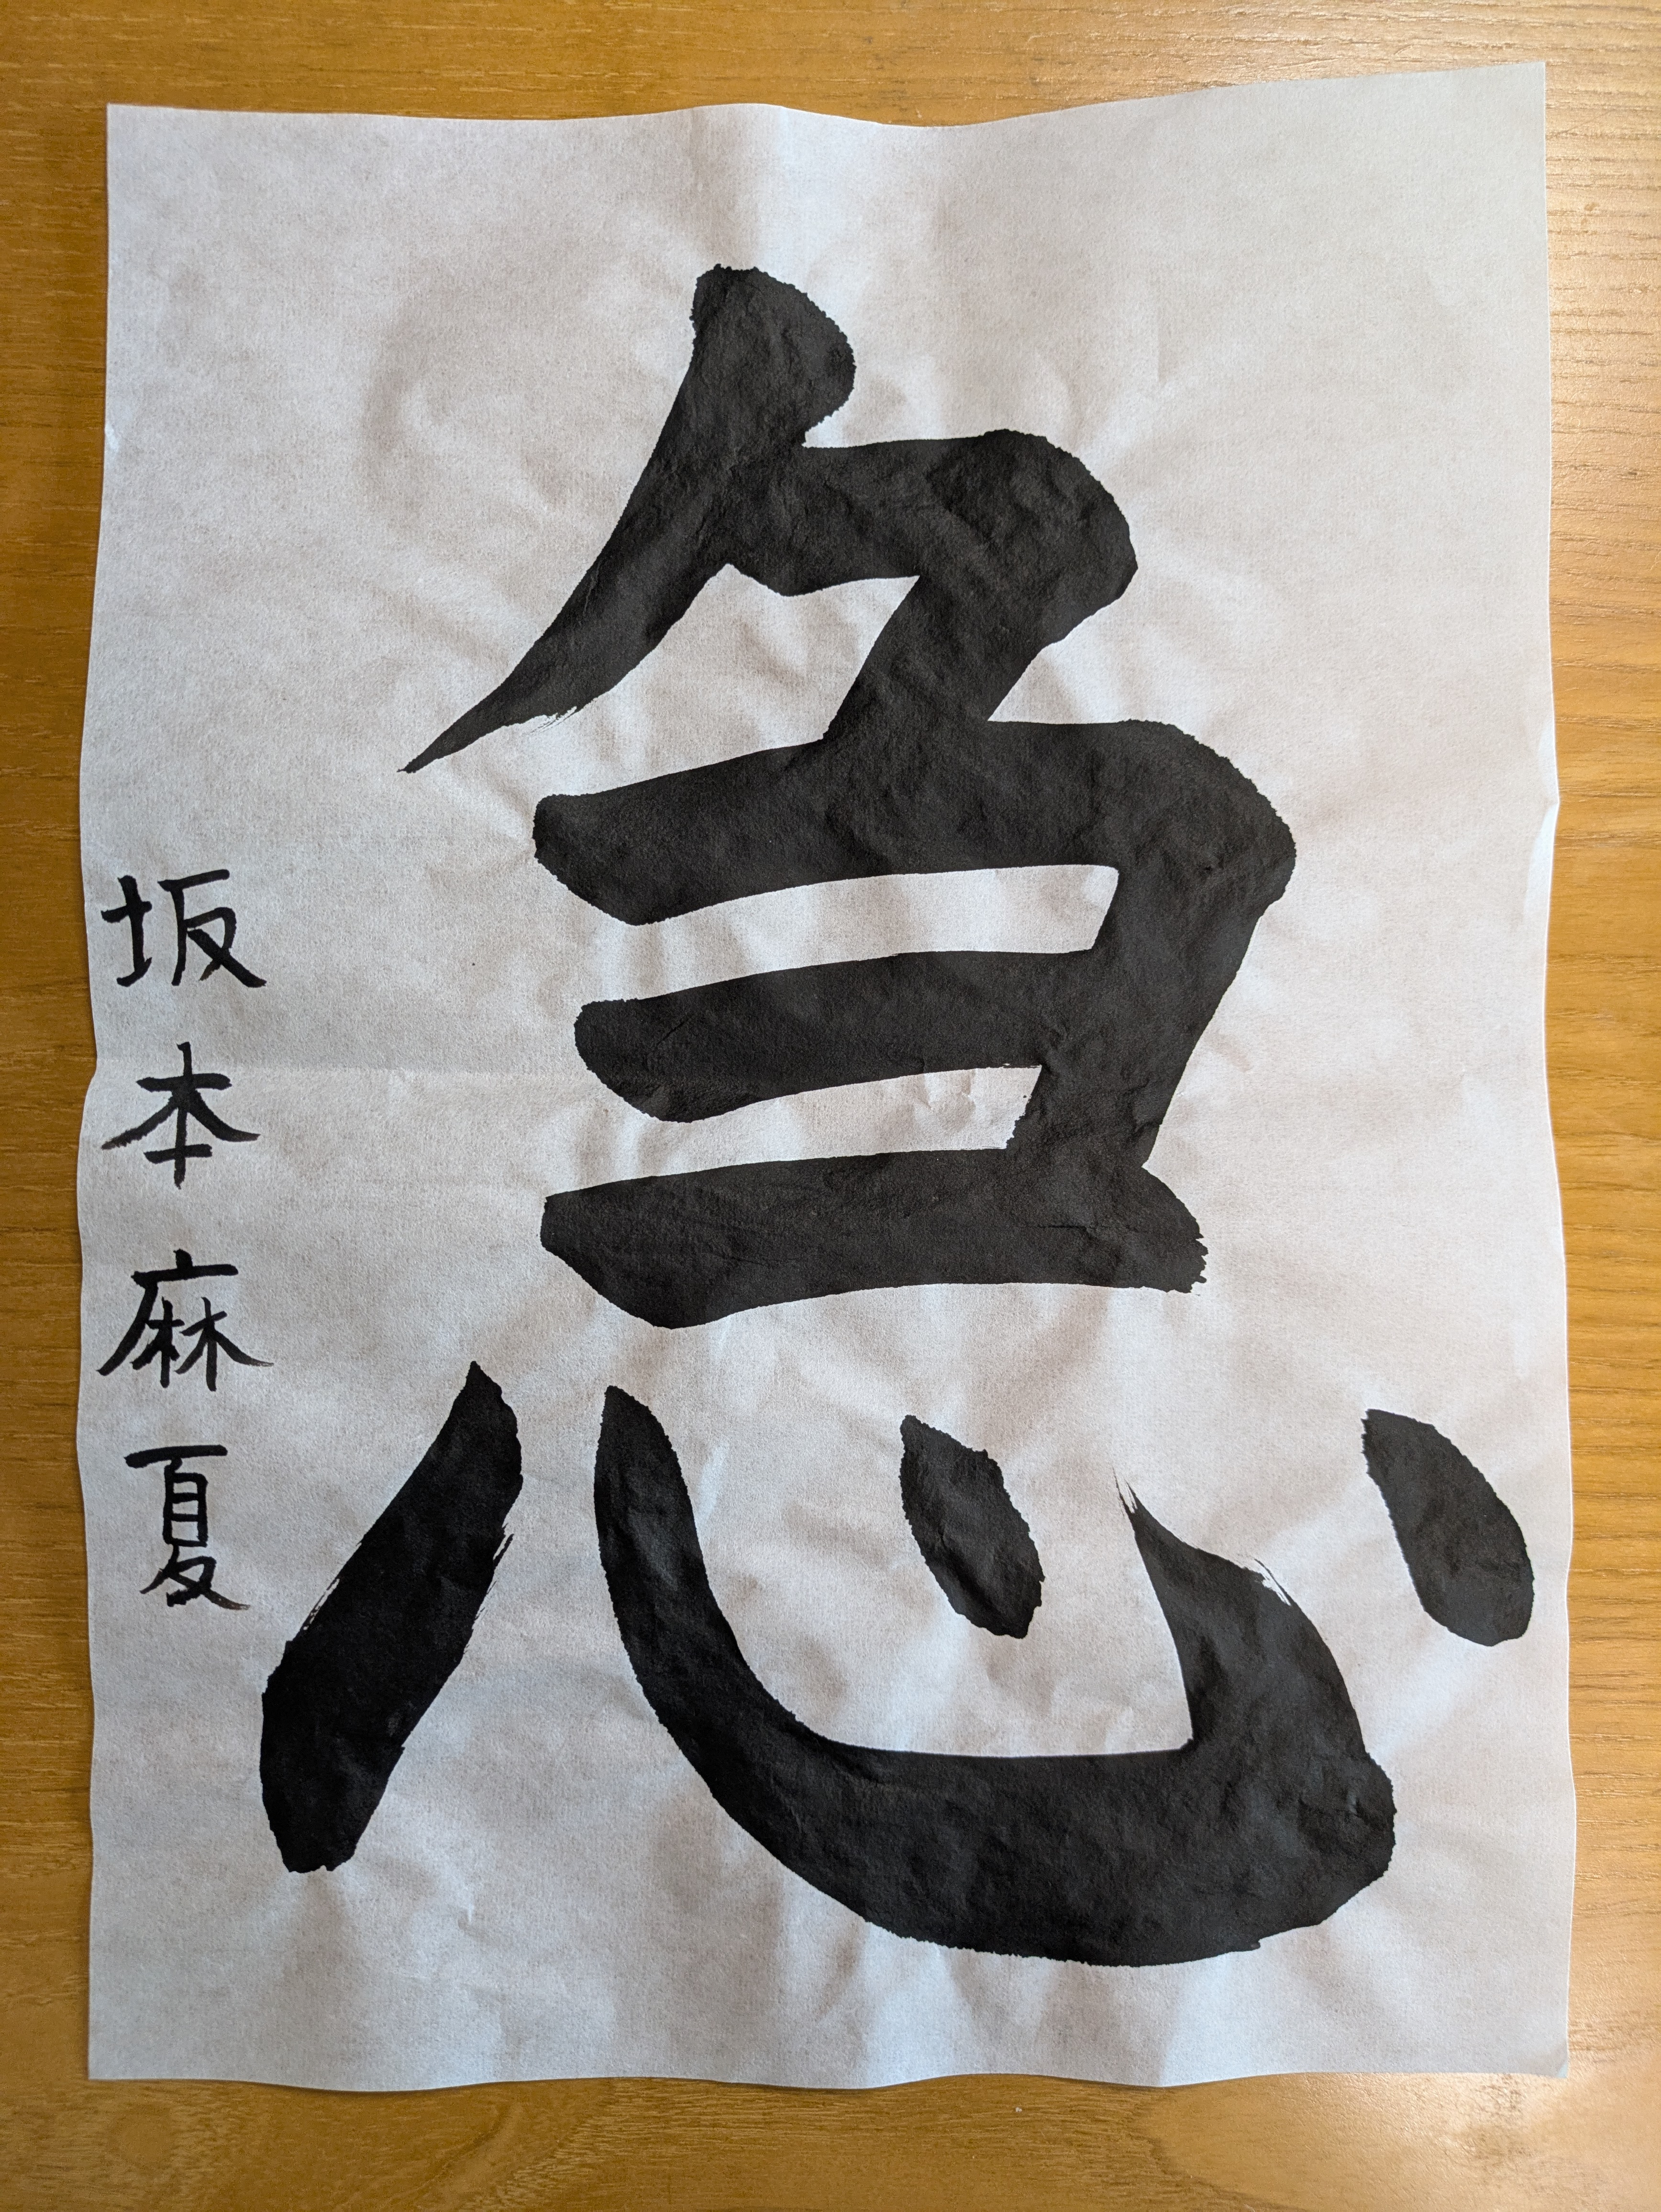 急
坂本麻夏